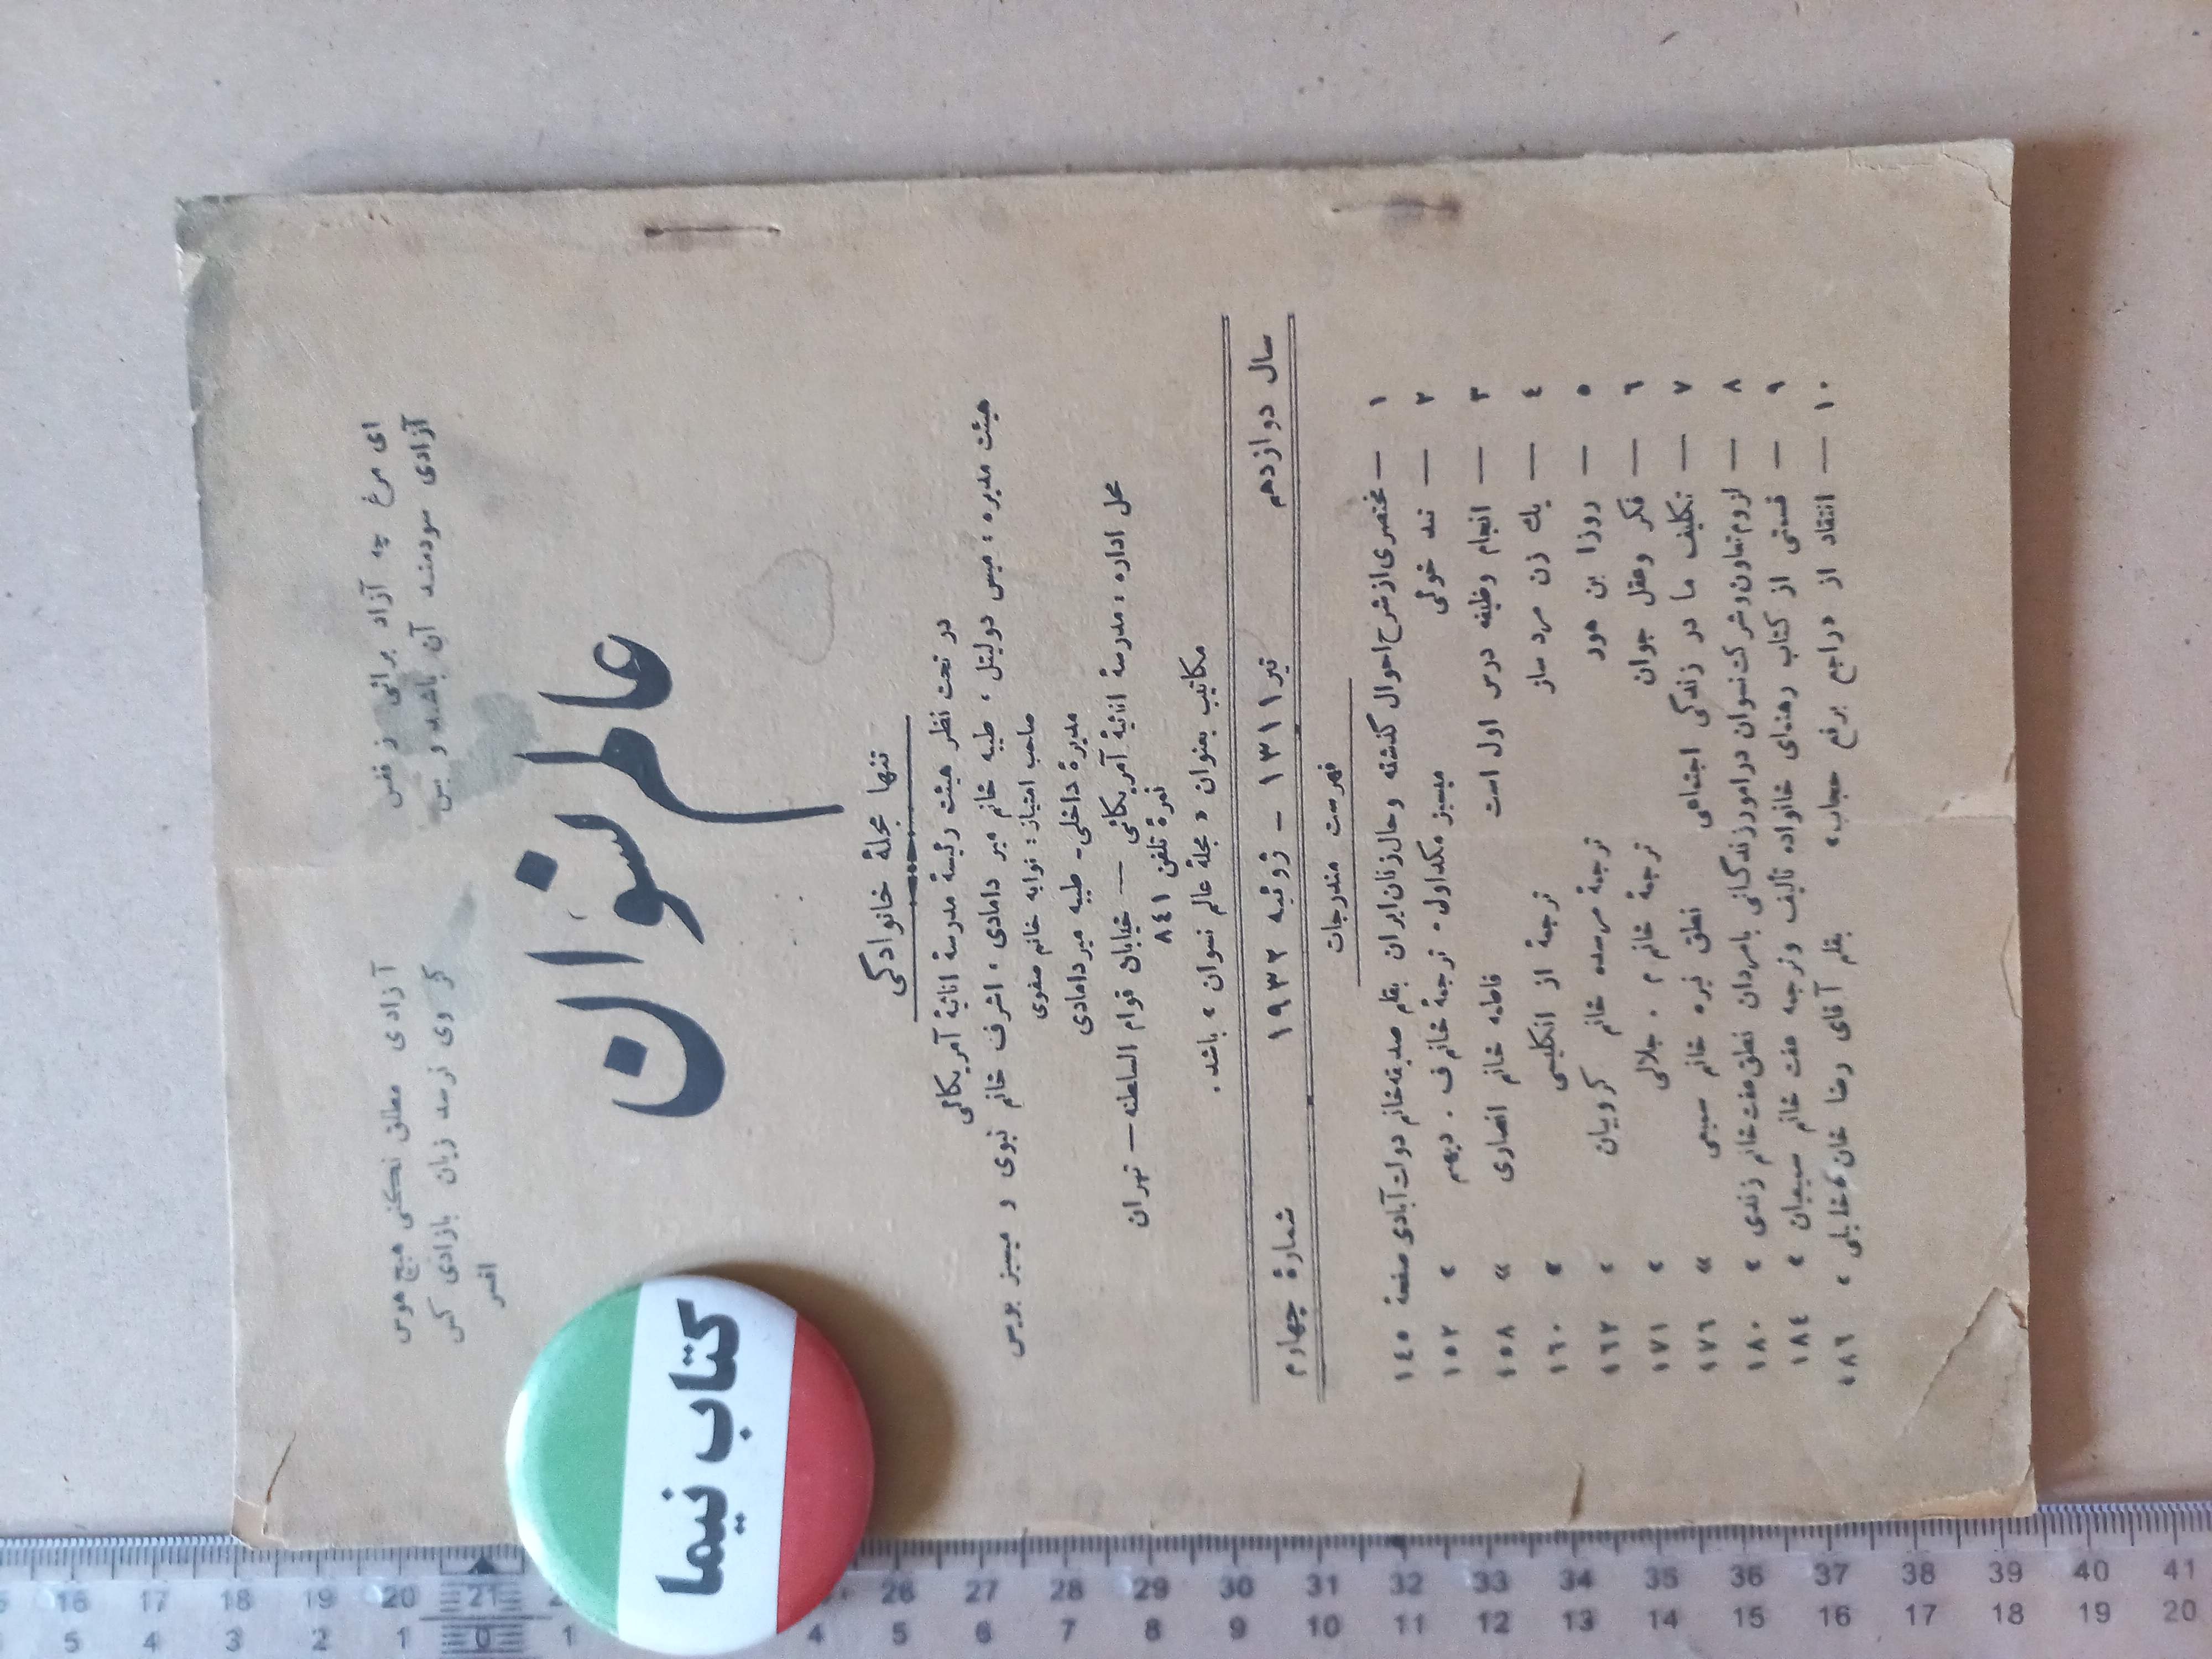 ای مرغ چه آزاد برانی ز قفس
آزادی مطلق نکنی هیچ هوس
آزادی سودمند آن باشد و بس
کز وی نرسد زیان بازادی کس
افسر
عالم نسوان
تنها مجلهٔ خانوادگی
در تحت نظر هیئت رئیسهٔ مدرسهٔ اناثیهٔ آمریکائی
هیئت مدیره : میس دولیتل ، طیبه خانم میر دامادی ، اشرف خانم نبوی و میسیز بویس
صاحب امتیاز : نوابه خانم صفوی
مدیرهٔ داخلی - طیبه میردامادی
محل اداره : مدرسهٔ اناثیهٔ آمریکائی — خیابان قوام السلطنه — تهران
نمرهٔ تلفن ٨٤١
مکاتیب بعنوان « مجلهٔ عالم نسوان » باشد .
سال دوازدهم
تیر ١٣١١ - ژوئیه ١٩٣٢
شمارهٔ چهارم
فهرست مندرجات
١ — مختصری از شرح احوال گذشته وحال زنان ایران بقلم صدیقه خانم دولت آبادی صفحهٔ ١٤٥
٢ — تند خوئی میسیز مکداول - ترجمهٔ خانم ف . دیهیم « ١٥٢
٣ — انجام وظیفه درس اول است فاطمه خانم انصاری « ١٥٨
٤ — یك زن مرد ساز ترجمهٔ از انگلیسی « ١٦٠
٥ — روزا بن هور ترجمهٔ مرسده خانم کروبیان « ١٦٢
٦ — فکر وعقل جوان ترجمهٔ خانم م . جلالی « ١٧١
٧ — تکلیف ما در زندگی اجتماعی نطق نیره خانم سمیعی « ١٧٦
٨ — لزوم تعاون وشرکت نسوان در امور زندگانی بامردان نطق عفت خانم زندی « ١٨٠
٩ — قسمتی از کتاب رهنمای خانواده تألیف وترجمه عفت خانم سمیعیان « ١٨٤
١٠ — انتقاد از «راجع برفع حجاب» بقلم آقای رضا خان « ١٨٦
کتاب نیما
16 17 18 19 20 21 26 27 28 29 30 31 32 33 34 35 36 37 38 39 40 41
5 4 3 2 1 0 1 4 5 6 7 8 9 10 11 12 13 14 15 16 17 18 19 20